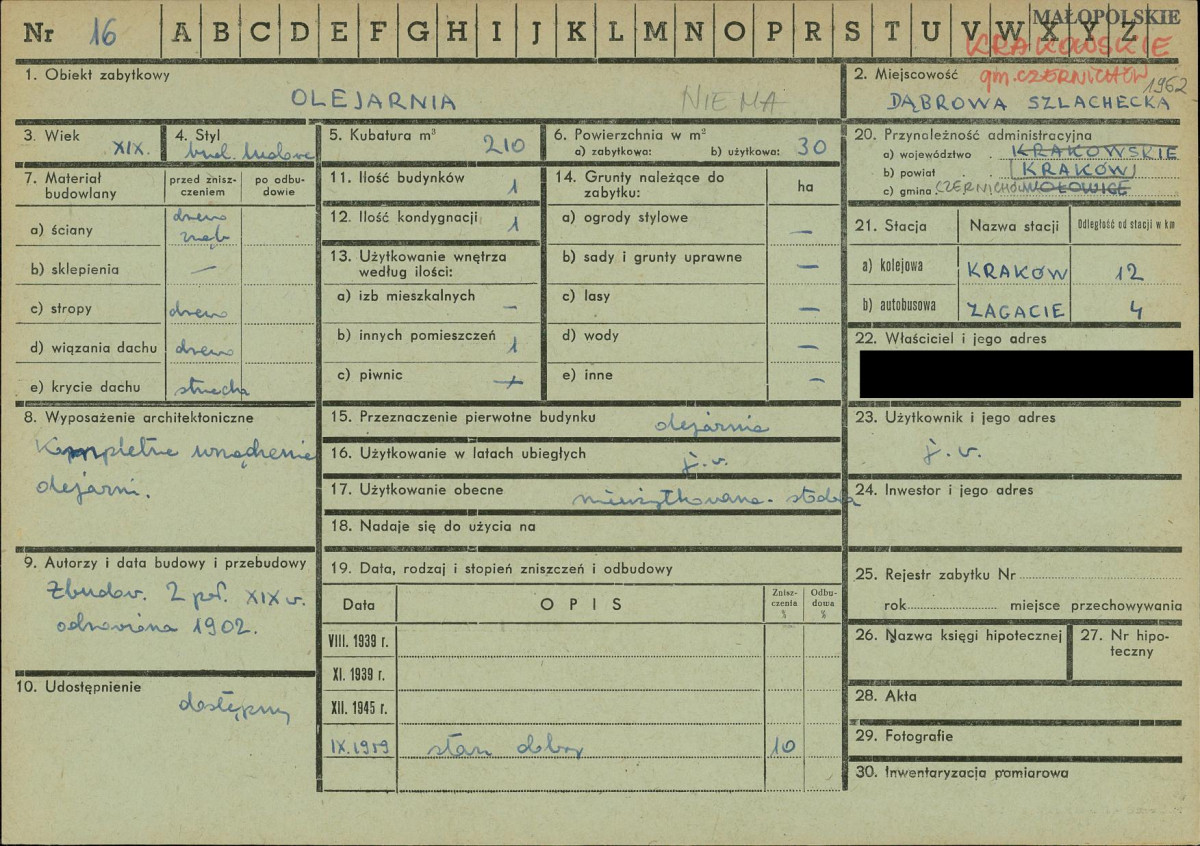 Nr 16 A B C D E F G H I J K L M N O P R S T U V W X Y Z
MAŁOPOLSKIE
KRAKOWSKIE
gm. CZERNICHÓW
1962
1. Obiekt zabytkowy
OLEJARNIA NIE MA
2. Miejscowość
DĄBROWA SZLACHECKA
3. Wiek XIX.
4. Styl
bud. ludowe
5. Kubatura m³ 210
6. Powierzchnia w m²
a) zabytkowa: b) użytkowa: 30
7. Materiał budowlany
przed zniszczeniem
po odbudowie
a) ściany drewno zrąb
b) sklepienia —
c) stropy drewno
d) wiązania dachu drewno
e) krycie dachu strzecha
8. Wyposażenie architektoniczne
Kompletne urządzenie
olejarni.
9. Autorzy i data budowy i przebudowy
Zbudow. 2 poł. XIX w.
odnowiona 1902.
10. Udostępnienie
dostępny
11. Ilość budynków 1
12. Ilość kondygnacji 1
13. Użytkowanie wnętrza
według ilości:
a) izb mieszkalnych —
b) innych pomieszczeń 1
c) piwnic —
14. Grunty należące do
zabytku: ha
a) ogrody stylowe —
b) sady i grunty uprawne —
c) lasy —
d) wody —
e) inne —
15. Przeznaczenie pierwotne budynku olejarnia
16. Użytkowanie w latach ubiegłych j. w.
17. Użytkowanie obecne nieużytkowana - stodoła
18. Nadaje się do użycia na
19. Data, rodzaj i stopień zniszczeń i odbudowy
Data OPIS Zniszczenia % Odbudowa %
VIII. 1939 r.
XI. 1939 r.
XII. 1945 r.
IX. 1959 stan dobry 10
20. Przynależność administracyjna
a) województwo KRAKOWSKIE
b) powiat KRAKÓW
c) gmina CZERNICHÓW WOŁOWICE
21. Stacja Nazwa stacji Odległość od stacji w km
a) kolejowa KRAKÓW 12
b) autobusowa ZAGACIE 4
22. Właściciel i jego adres
23. Użytkownik i jego adres
j. w.
24. Inwestor i jego adres
25. Rejestr zabytku Nr
rok miejsce przechowywania
26. Nazwa księgi hipotecznej
27. Nr hipoteczny
28. Akta
29. Fotografie
30. Inwentaryzacja pomiarowa